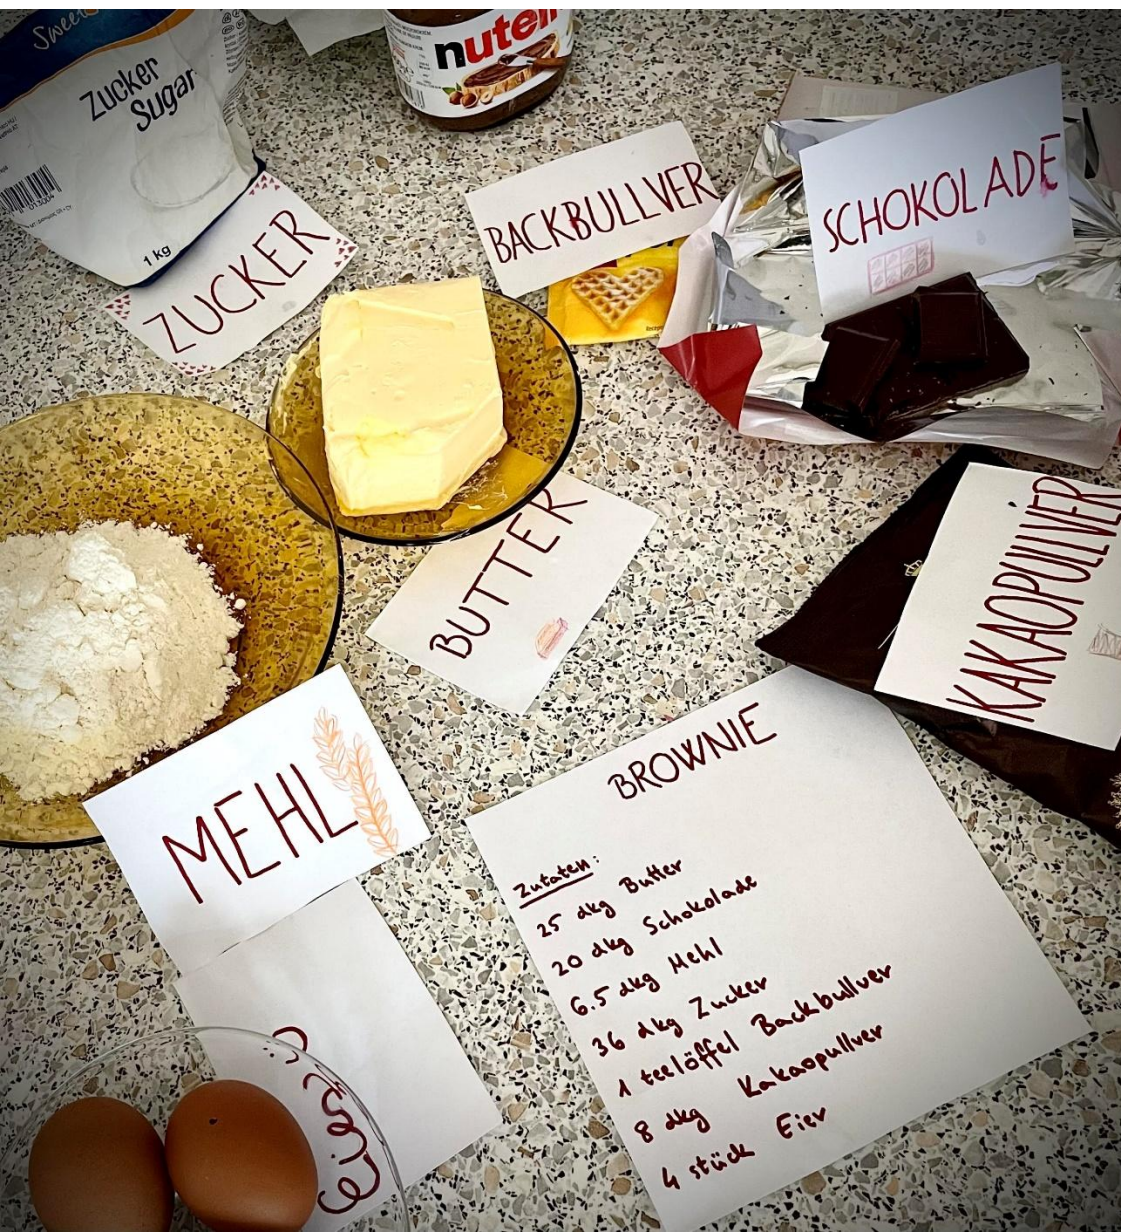 Sweet
Zucker
Sugar
1 kg
nutell
ZUCKER
BACKBULLVER
SCHOKOLADE
BUTTER
KAKAOPULLVER
MEHL
Eier
BROWNIE
Zutaten:
25 dkg Butter
20 dkg Schokolade
6.5 dkg Mehl
36 dkg Zucker
1 teelöffel Backbullver
8 dkg Kakaopullver
4 stück Eier